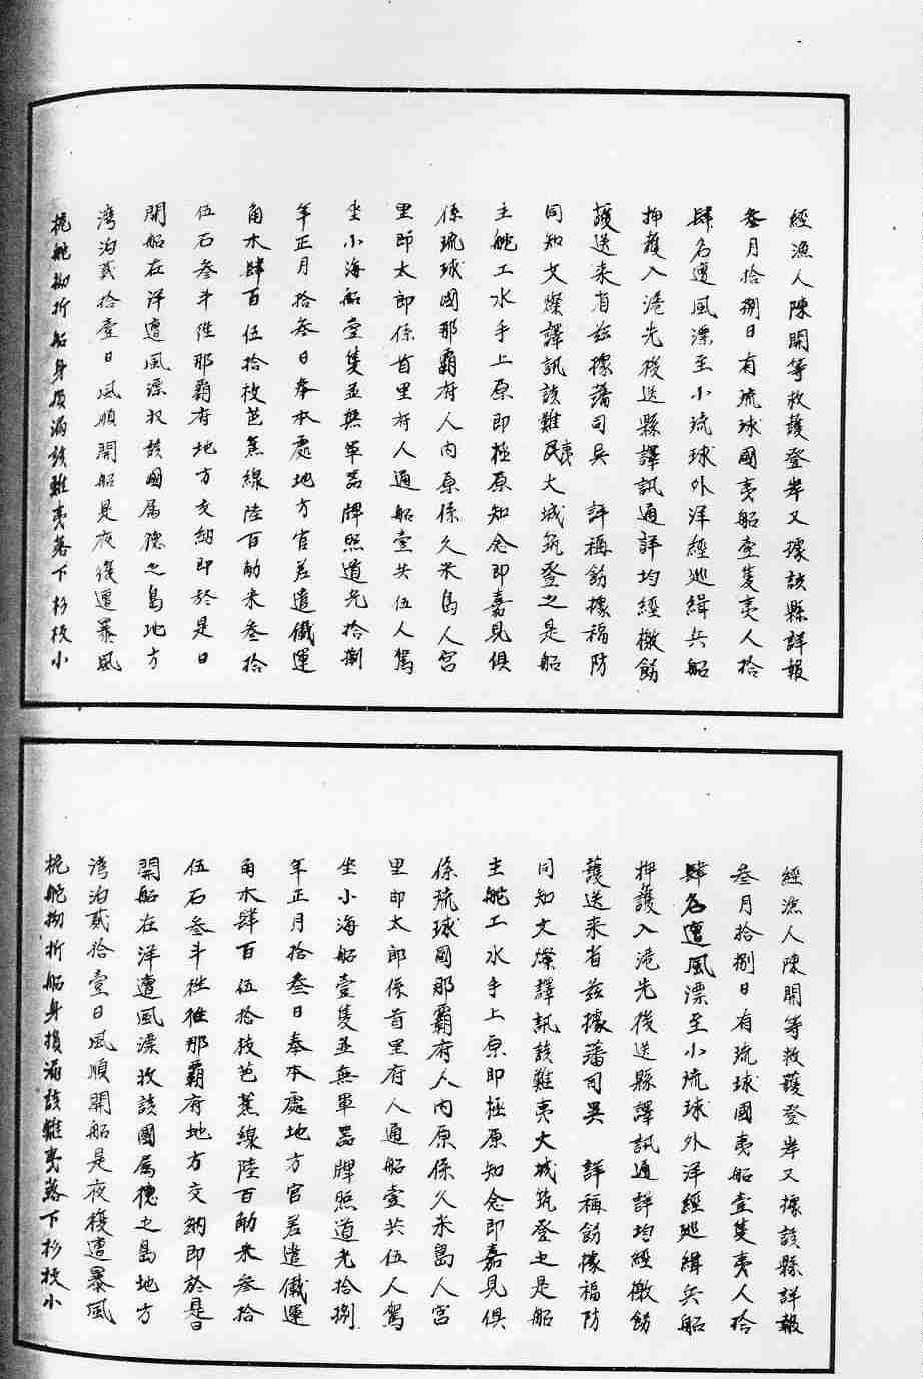 經漁人陳開等救護登岸又據該縣詳報
叁月拾捌日有流球國夷船壹隻夷人拾
肆名遭風漂至小琉球外洋經巡緝兵船
押護入港先後送縣譯訊通詳均經檄飭
護送来省兹據藩司吳 詳稱飭據福防
同知文燦譯訊該難民夷大城筑登之是船
主舵工水手上原即極原知念即嘉見俱
係琉球國那霸府人內原係久米島人宮
里即太郎係首里府人通船壹共伍人駕
坐小海船壹隻並無軍器牌照道光拾捌
年正月拾叁日奉本處地方官差遣儎運
角木肆百伍拾枝芭蕉線陸百觔米叁拾
伍石叁斗往那霸府地方交納即於是日
開船在洋遭風漂收該國属德之島地方
湾泊貳拾壹日風順開船是夜復遭暴風
桅舵拗折船身損漏該難夷落下杉板小
經漁人陳開等救護登岸又據該縣詳報
叁月拾捌日有琉球國夷船壹隻夷人拾
肆名遭風漂至小琉球外洋經巡緝兵船
押護入港先後送縣譯訊通詳均經檄飭
護送来省兹據藩司吳 詳稱飭據福防
同知文燦譯訊該難夷大城筑登之是船
主舵工水手上原即極原知念即嘉見俱
係琉球國那霸府人內原係久米島人宮
里即太郎係首里府人通船壹共伍人駕
坐小海船壹隻並無軍器牌照道光拾捌
年正月拾叁日奉本處地方官差遣儎運
角木肆百伍拾枝芭蕉線陸百觔米叁拾
伍石叁斗往那霸府地方交納即於是日
開船在洋遭風漂收該國属德之島地方
湾泊貳拾壹日風順開船是夜復遭暴風
桅舵拗折船身損漏該難夷落下杉板小